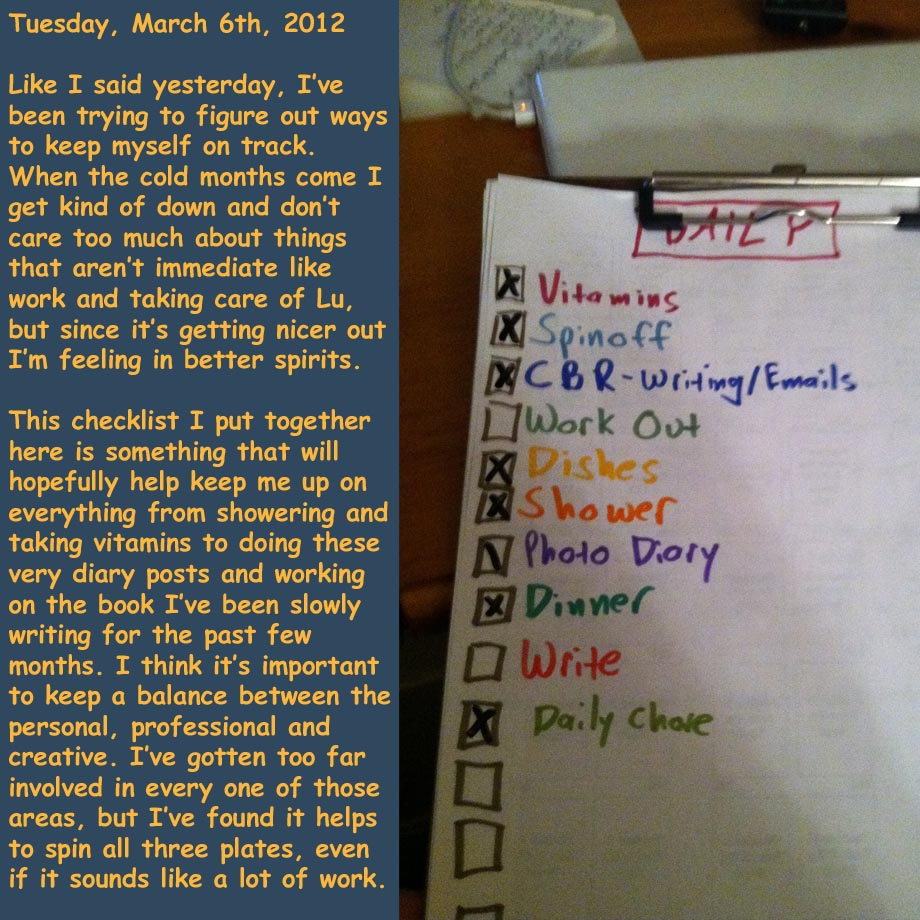 Tuesday, March 6th, 2012
Like I said yesterday, I've
been trying to figure out ways
to keep myself on track.
When the cold months come I
get kind of down and don't
care too much about things
that aren't immediate like
work and taking care of Lu,
but since it's getting nicer out
I'm feeling in better spirits.
This checklist I put together
here is something that will
hopefully help keep me up on
everything from showering and
taking vitamins to doing these
very diary posts and working
on the book I've been slowly
writing for the past few
months. I think it's important
to keep a balance between the
personal, professional and
creative. I've gotten too far
involved in every one of those
areas, but I've found it helps
to spin all three plates, even
if it sounds like a lot of work.
DAILY
Vitamins
Spinoff
CBR-Writing/Emails
Work Out
Dishes
Shower
Photo Diary
Dinner
Write
Daily Chore